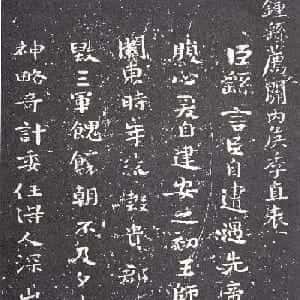 鍾繇薦關內侯季直表
臣繇言臣自遭遇先帝
腹心爰自建安之初王師
關東時年荒穀貴郡
毀三軍餽饟朝不及夕
神略奇計委任得人深山